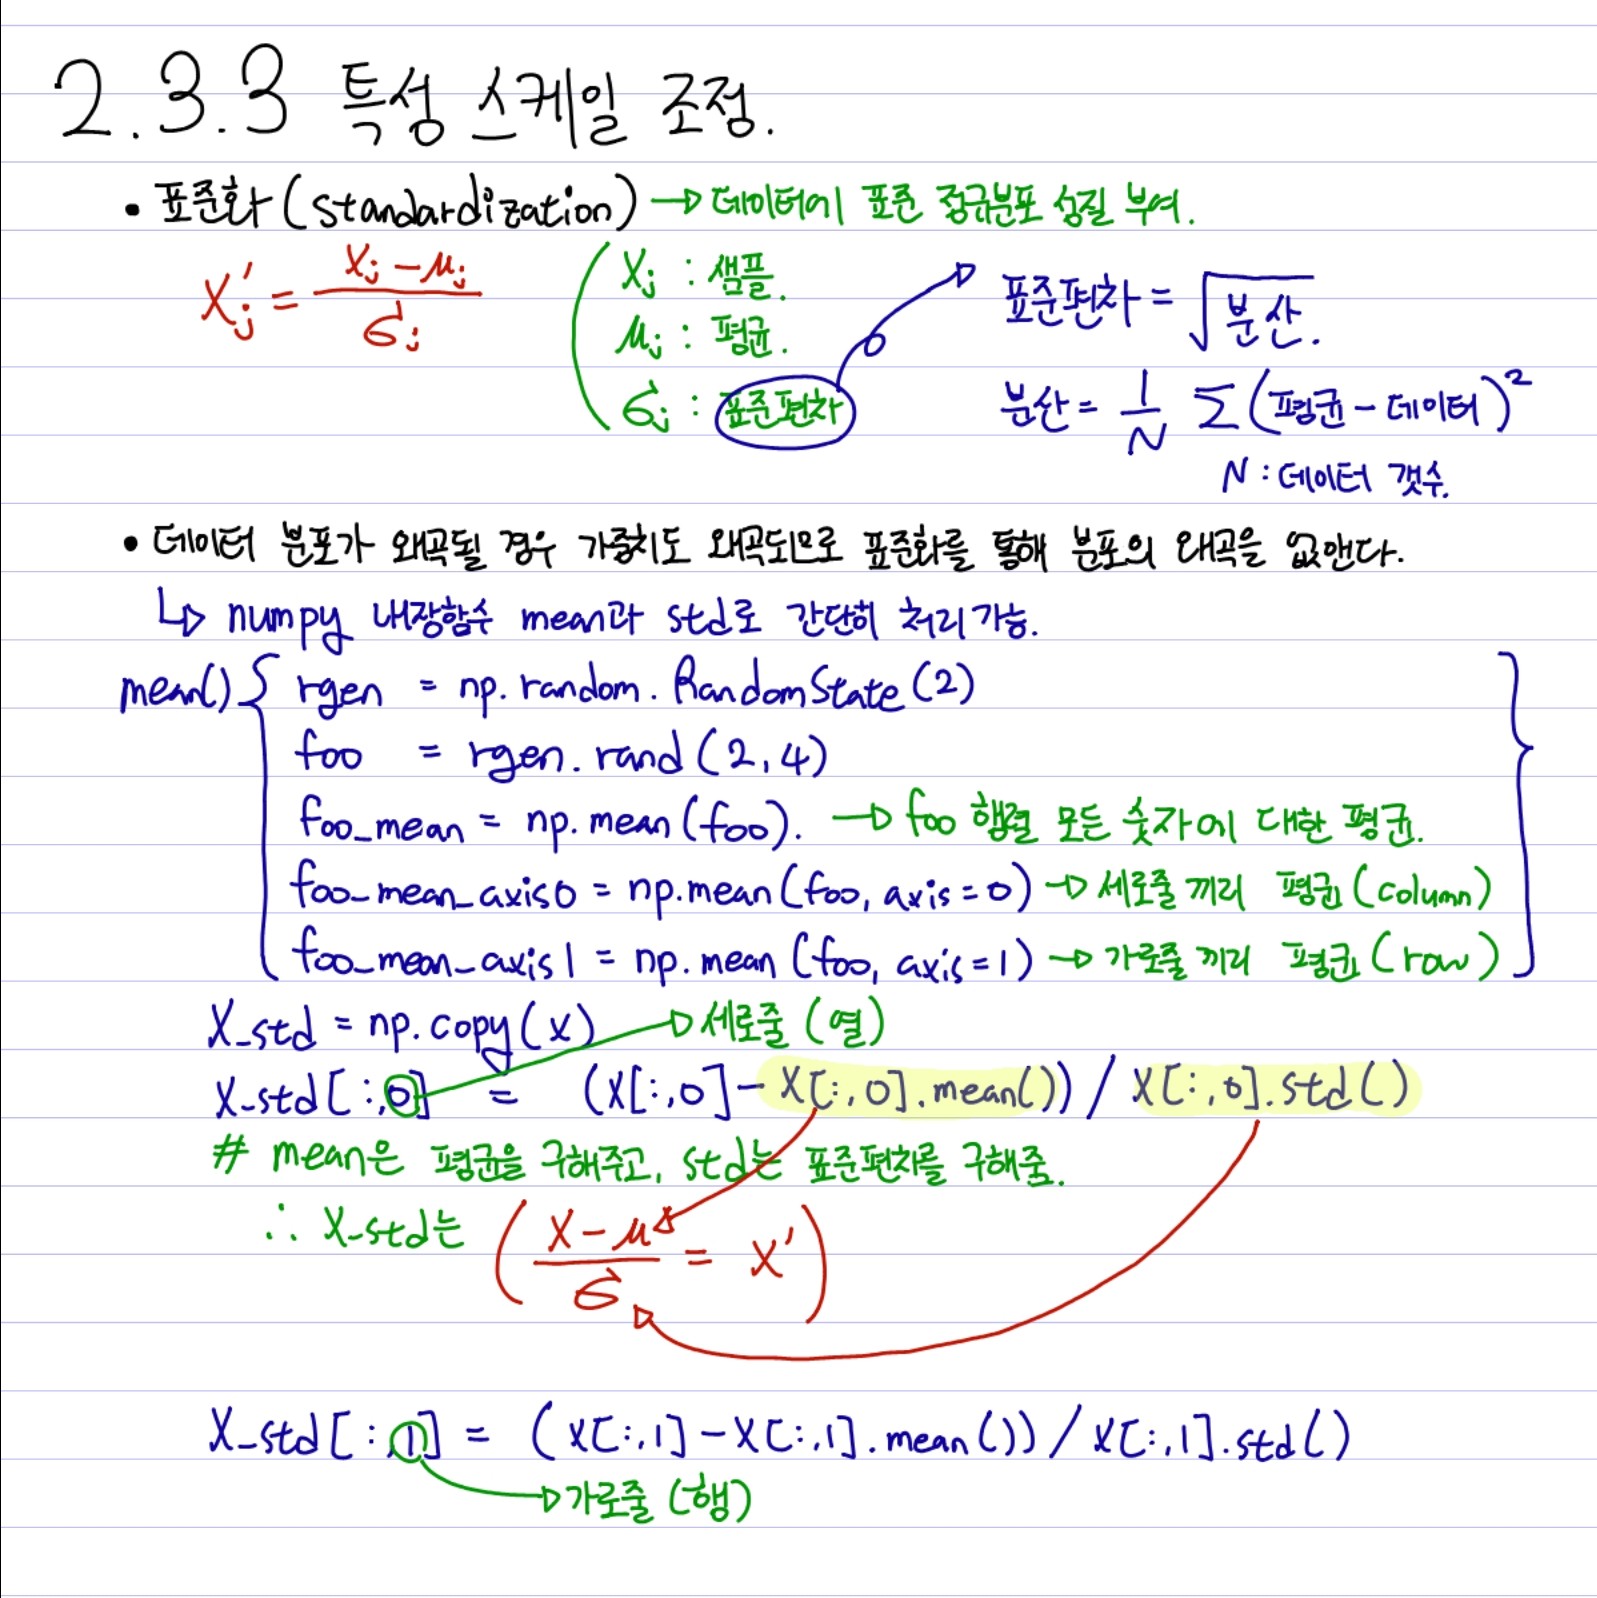 2.3.3 특성 스케일 조정.
• 표준화(standardization) → 데이터에 표준 정규분포 성질 부여.
Xj' = (Xj - μj) / σj
Xj : 샘플.
μj : 평균.
σj : 표준편차
표준편차 = √분산.
분산 = 1/N Σ(평균 - 데이터)²
N : 데이터 갯수.
• 데이터 분포가 왜곡될 경우 가중치도 왜곡되므로 표준화를 통해 분포의 왜곡을 없앤다.
↳ numpy 내장함수 mean과 std로 간단히 처리가능.
mean() { rgen = np.random.RandomState(2)
foo = rgen.rand(2,4)
foo_mean = np.mean(foo). → foo 행렬 모든 숫자에 대한 평균.
foo_mean_axis0 = np.mean(foo, axis=0) → 세로줄 끼리 평균(column)
foo_mean_axis1 = np.mean(foo, axis=1) → 가로줄 끼리 평균(row) }
X_std = np.copy(x) → 세로줄(열)
X_std[:,0] = (X[:,0] - X[:,0].mean()) / X[:,0].std()
# mean은 평균을 구해주고, std는 표준편차를 구해줌.
∴ X_std는 ((X - μ) / σ = X')
X_std[:,1] = (X[:,1] - X[:,1].mean()) / X[:,1].std()
→ 가로줄(행)